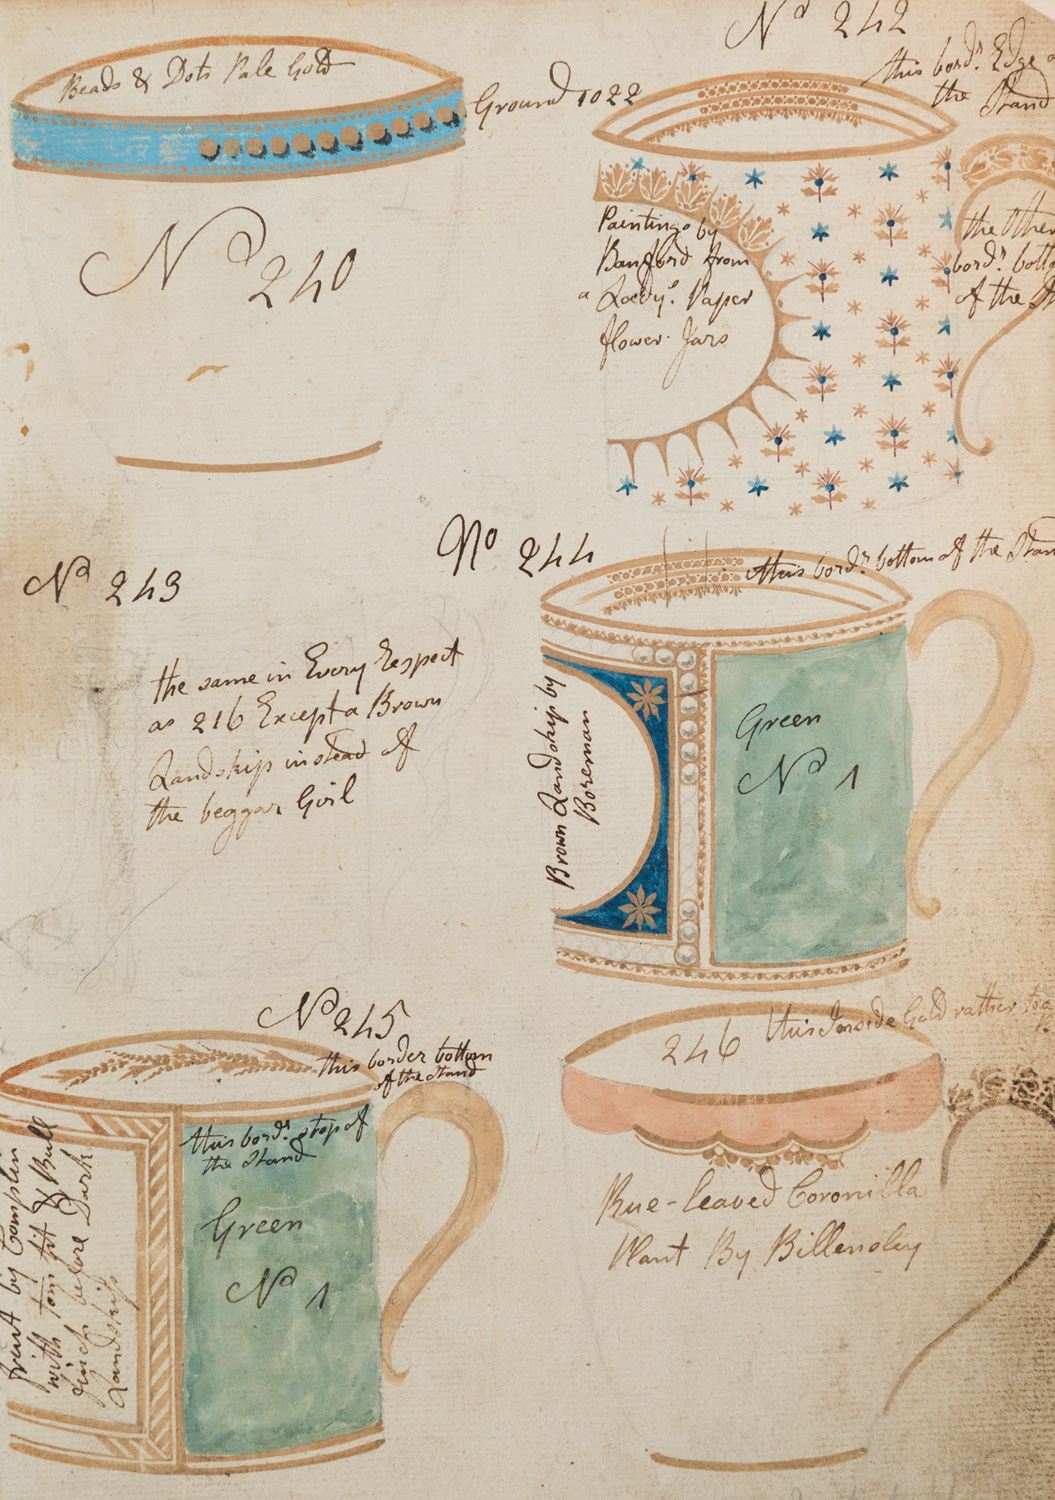 Beads & Dots Pale Gold
Ground 1022
No 240
No 242
this bord.r Edge
the Stand
Paintings by
Banford from
a Lady.s Paper
flower Jars
the Other
bord.r bottom
of the
No 243
the same in Every Respect
as 216 Except a Brown
Landskip instead of
the beggar Girl
No 244
this bord.r bottom of the Stand
Brown Landskip by
Boreman
Green
No 1
No 245
this border bottom
of the Stand
fruit by Complin
with tom tit & Bull
finch before Dark
Landskip
this bord.r top of
the Stand
Green
No 1
246
this Inside Gold rather too
Rue-leaved Coronilla
Plant By Billensley